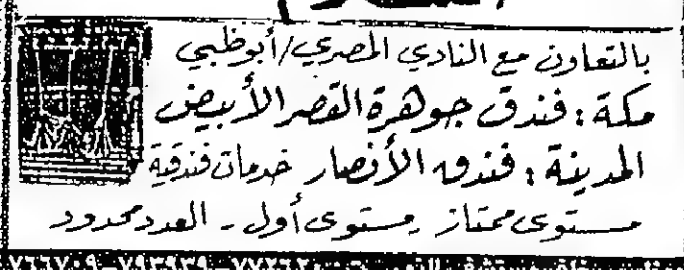 بالتعاون مع النادي المصري/أبوظبي
مكة : فندق جوهرة القصر الأبيض
المدينة : فندق الأنصار خدمات فندقية
مستوى ممتاز - مستوى أول - العدد محدود